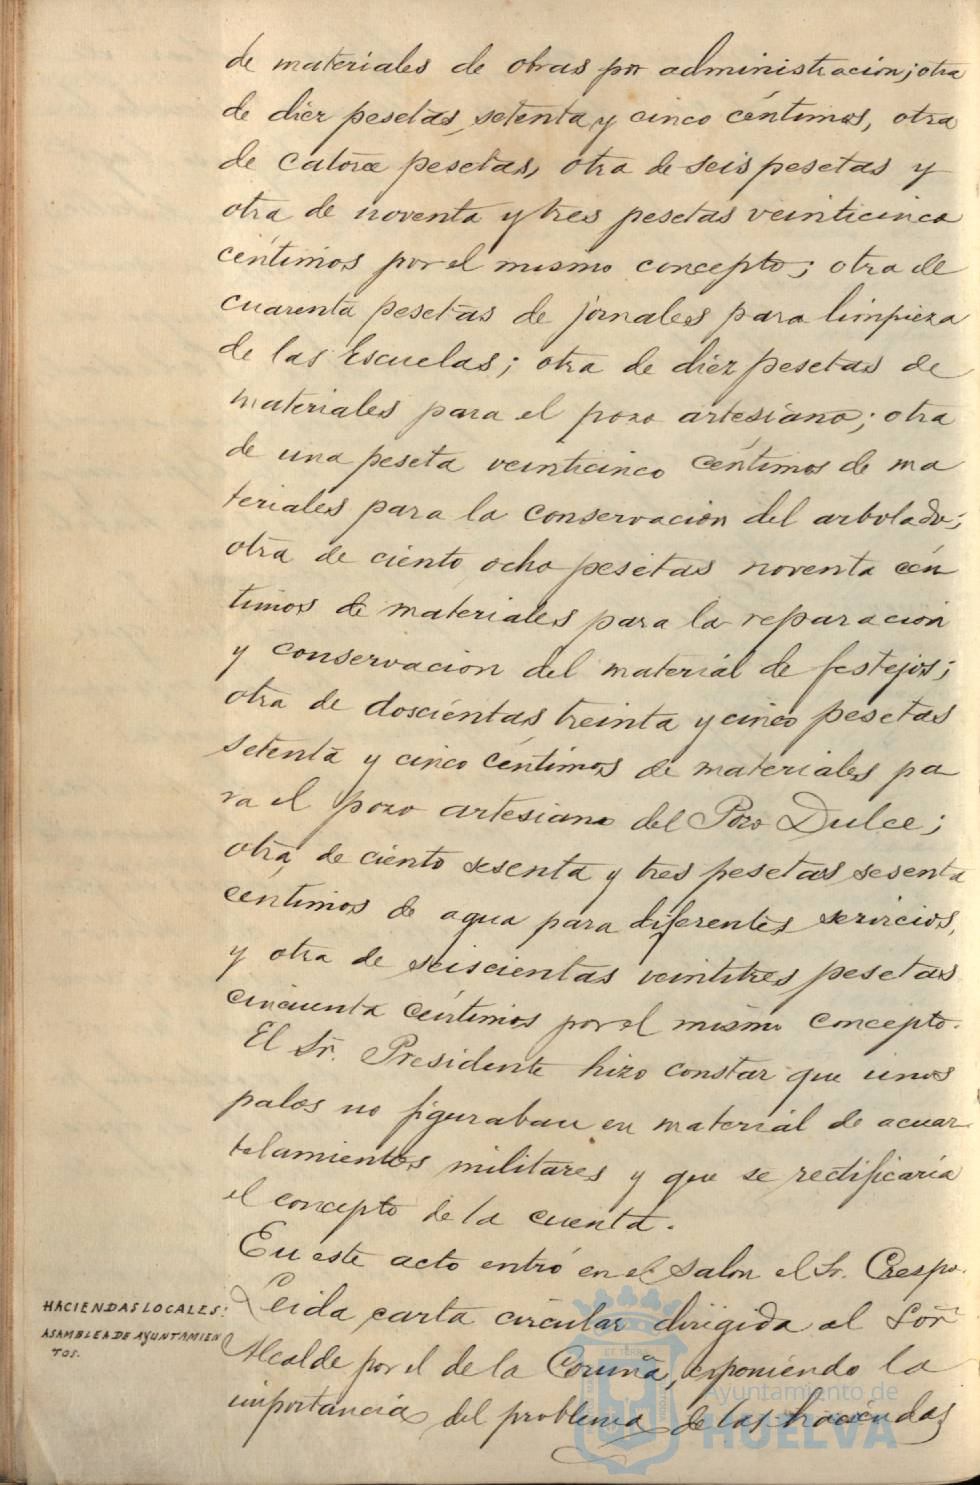 de materiales de obras por administracion; otra
de diez pesetas setenta y cinco céntimos, otra
de catorce pesetas, otra de seis pesetas y
otra de noventa y tres pesetas veinticinco
céntimos por el mismo concepto; otra de
cuarenta pesetas de jornales para limpieza
de las Escuelas; otra de diez pesetas de
materiales para el pozo artesiano; otra
de una peseta veinticinco céntimos de ma
teriales para la conservacion del arbolado;
otra de ciento ocho pesetas noventa cén
timos de materiales para la reparacion
y conservacion del material de festejos;
otra de doscientas treinta y cinco pesetas
setenta y cinco céntimos de materiales pa
ra el pozo artesiano del Pozo Dulce;
otra de ciento sesenta y tres pesetas sesenta
centimos de agua para diferentes servicios,
y otra de seiscientas veintitres pesetas
cincuenta céntimos por el mismo concepto.
El Sr. Presidente hizo constar que unos
palos no figuraban en material de acuar
telamientos militares y que se rectificaria
el concepto de la cuenta.
En este acto entró en el salon el Sr. Crespo.
HACIENDAS LOCALES:
ASAMBLEA DE AYUNTAMIEN
TOS.
Leida carta circular dirigida al Sor
Alcalde por el de la Coruña, exponiendo la
importancia del problema de las haciendas
Ayuntamiento de
HUELVA